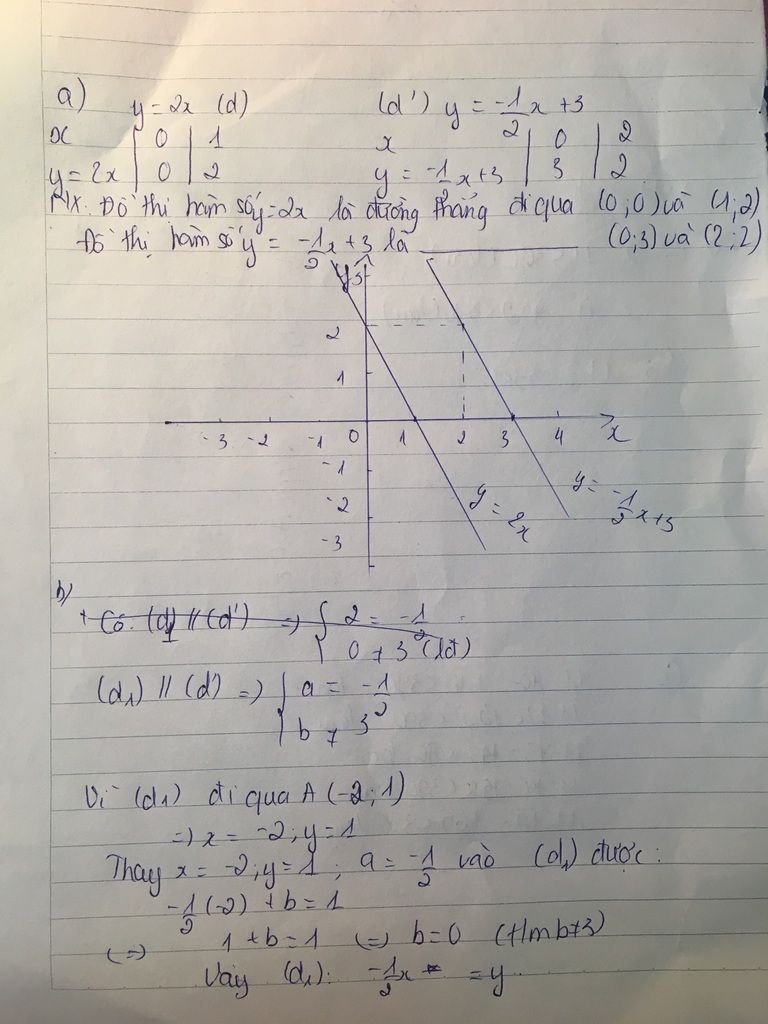 a) y = 2x (d) (d') y = -1/2 x + 3
x | 0 | 1 x | 0 | 2
y = 2x | 0 | 2 y = -1/2 x + 3 | 3 | 2
NX. Đồ thị hàm số y = 2x là đường thẳng đi qua (0;0) và (1;2)
Đồ thị hàm số y = -1/2 x + 3 là ———— (0;3) và (2;2)
y 3
2
1
-3 -2 -1 0 1 2 3 4 x
-1
-2
-3
y = 2x
y = -1/2 x + 3
b)
+ Có: (d) // (d') => { 2 = -1/2
0 ≠ 3 (lđ)
(d₁) // (d') => { a = -1/2
b ≠ 3
Vì (d₁) đi qua A (-2; 1)
=> x = -2; y = 1
Thay x = -2; y = 1; a = -1/2 vào (d₁) được:
-1/2 (-2) + b = 1
<=> 1 + b = 1 <=> b = 0 (t/m b ≠ 3)
Vậy (d₁): -1/2 x = y